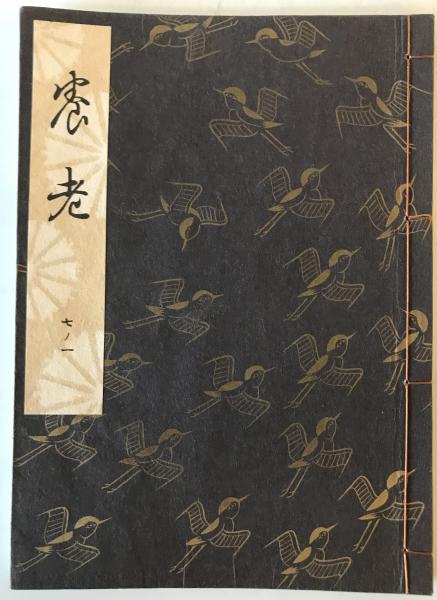 養老
七ノ一